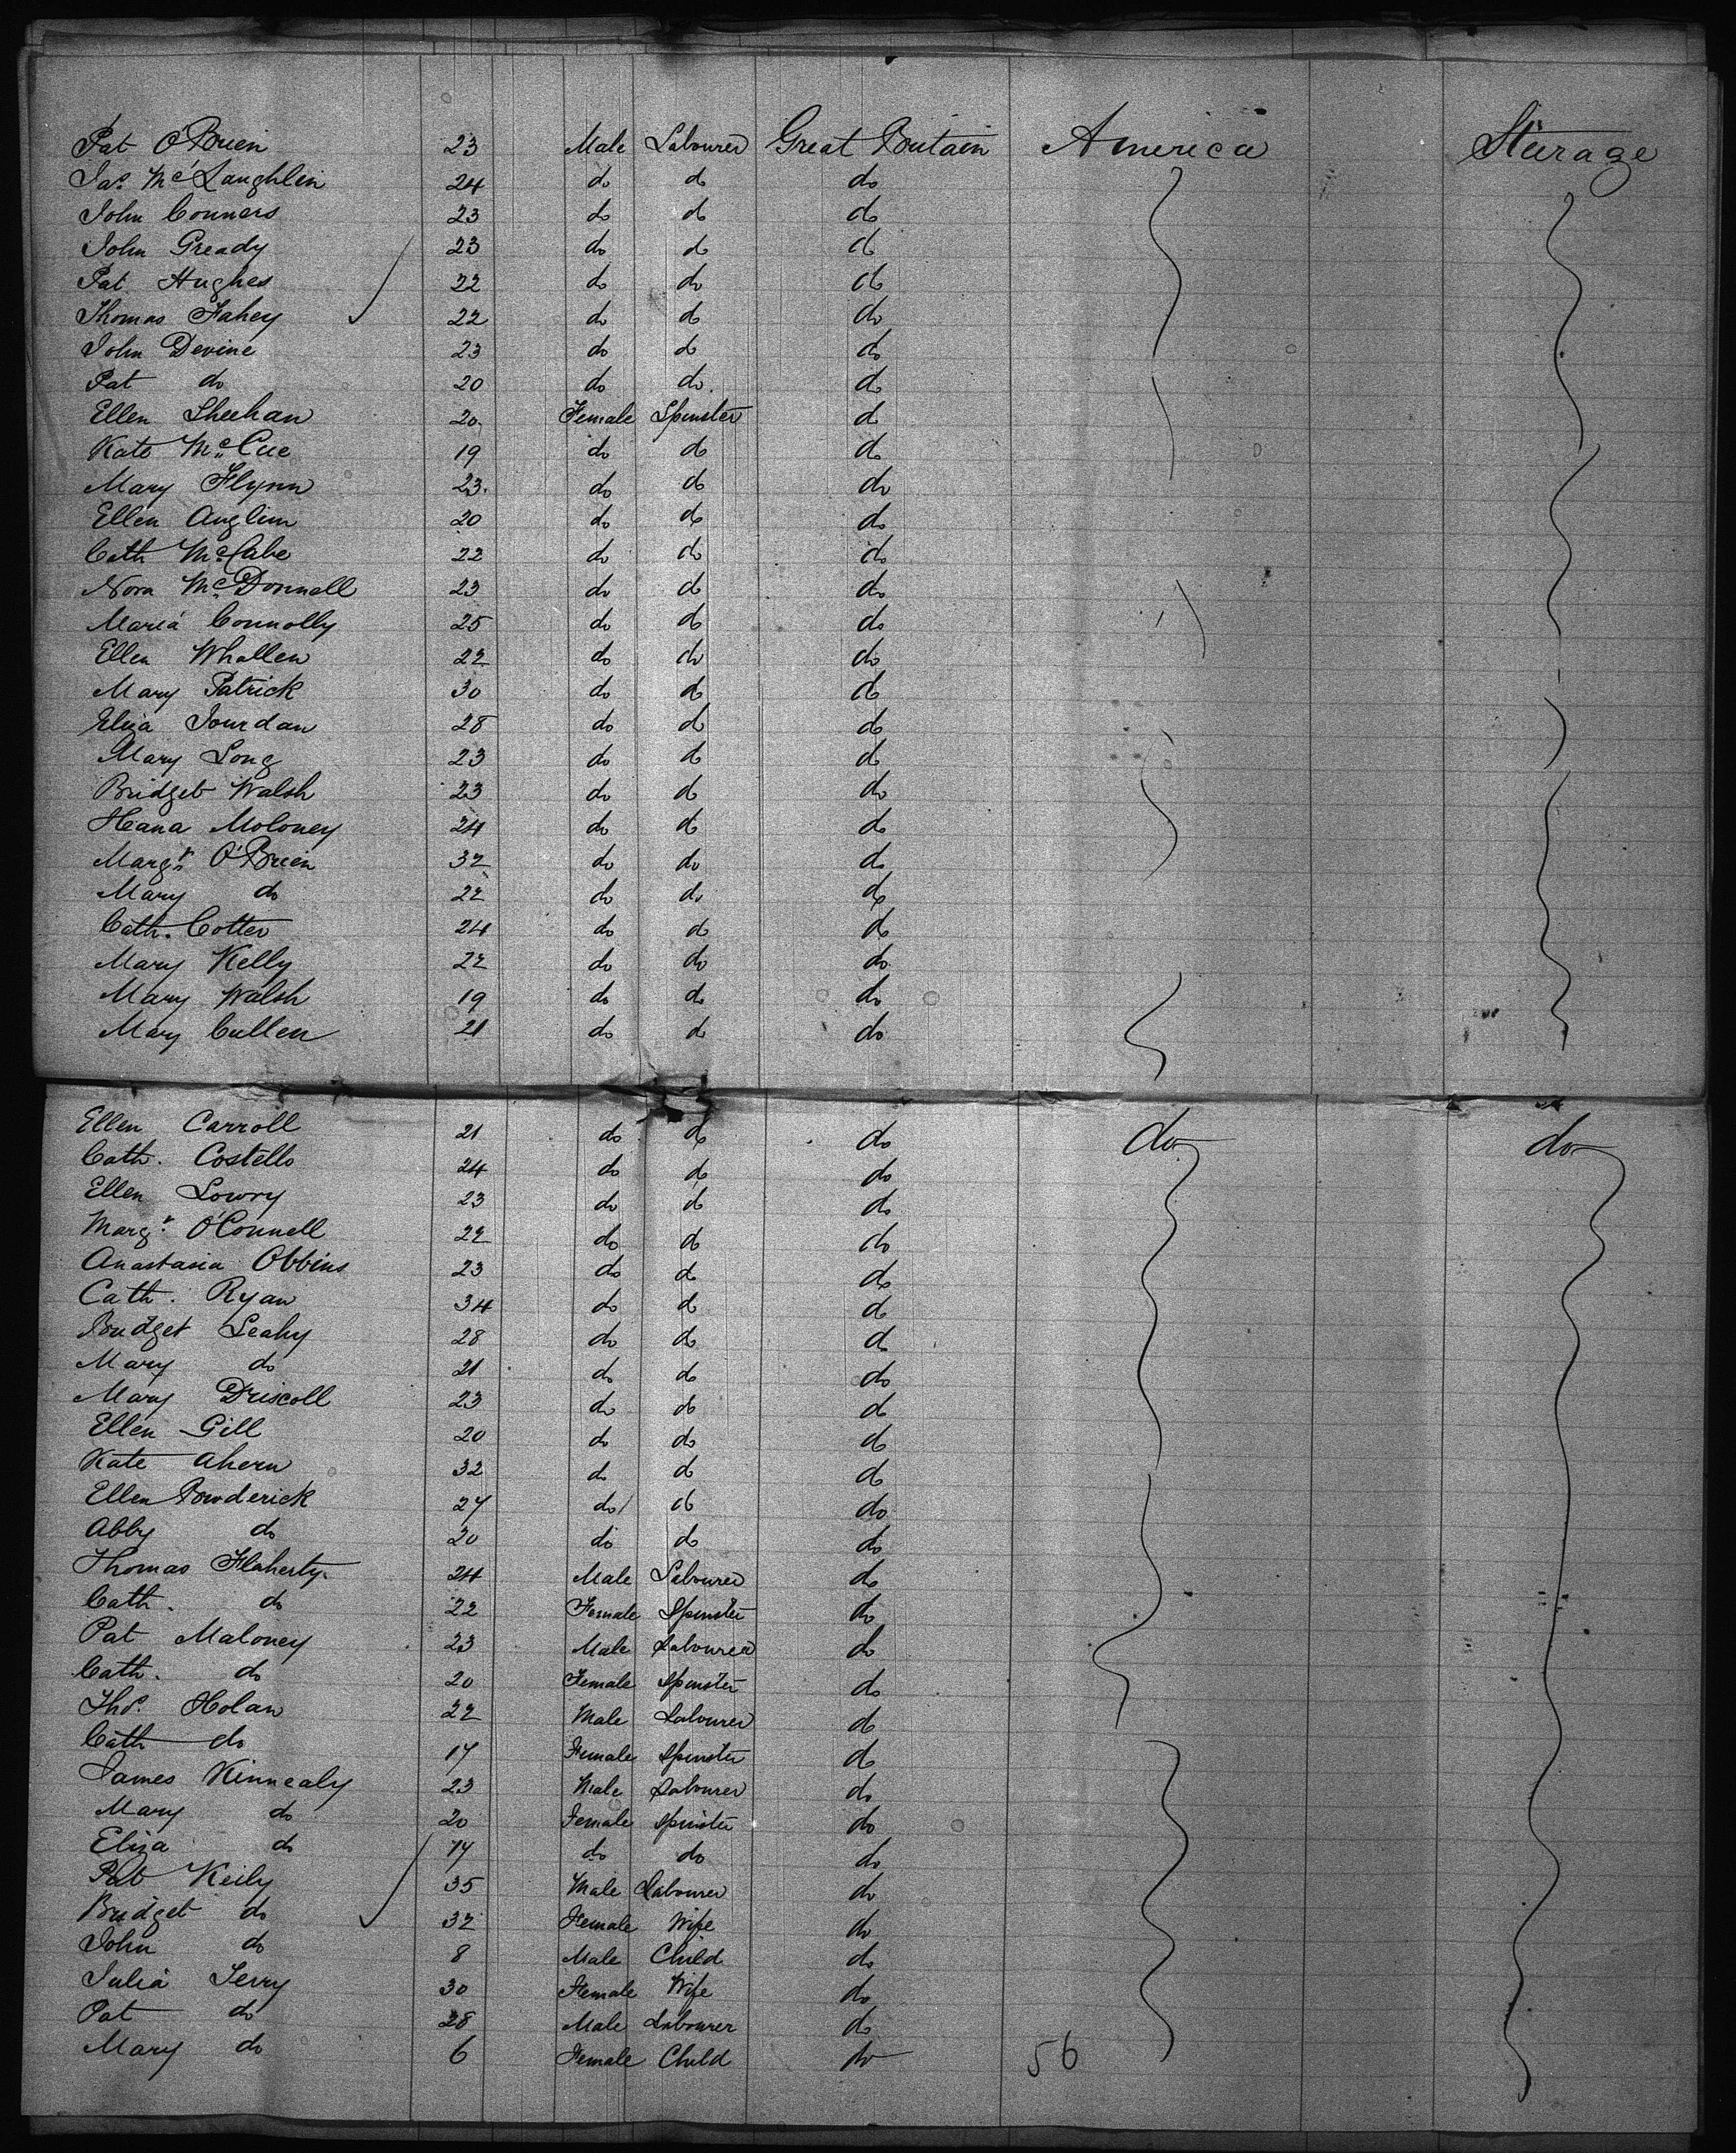 Pat O'Brien 23 Male Labourer Great Britain America Steerage
Jas. McLaughlin 24 do do do
John Conners 23 do do do
John Gready 23 do do do
Pat Hughes 22 do do do
Thomas Fahey 22 do do do
John Devine 23 do do do
Pat do 20 do do. do
Ellen Sheehan 20. Female Spinster do
Kate McCue 19 do do do
Mary Flynn 23. do do do
Ellen Anglim 20 do do do
Cath McCabe 22 do do do
Nora McDonnell 23 do do do
Maria Connolly 25 do do do
Ellen Whallen 22 do do do
Mary Patrick 30 do do do
Eliza Jourdan 28 do do do
Mary Long 23 do do do
Bridget Walsh 23 do do do
Hana Moloney 24 do do do
Margt O'Brien 32 do do do
Mary do 22 do do do
Cath. Cotter 24 do do do
Mary Kelly 22 do do do
Mary Walsh 19 do do do
Mary Cullen 21 do do do
Ellen Carroll 21 do do do do do
Cath. Costello 24 do do do
Ellen Lowry 23 do do do
Margt. O'Connell 22 do do do
Anastasia Obbins 23 do do do
Cath. Ryan 34 do do do
Bridget Leahy 28 do do do
Mary do 21 do do do
Mary Driscoll 23 do do do
Ellen Gill 20 do do do
Kate Ahern 32 do do do
Ellen Browderick 27 do do do
Abby do 20 do do do
Thomas Flaherty. 24 Male Labourer do
Cath. do 22 Female Spinster do
Pat Maloney 23 Male Labourer do
Cath. do 20 Female Spinster do
Thos. Holan 22 Male Labourer do
Cath do 17 Female Spinster do
James Kinnealy 23 Male Labourer do
Mary do 20 Female Spinster do
Eliza do 17 do do do
Pat Keily 35 Male Labourer do
Bridget do 32 Female Wife do
John do 8 Male Child do
Julia Terry 30 Female Wife do
Pat do 28 Male Labourer do
Mary do 6 Female Child do 56